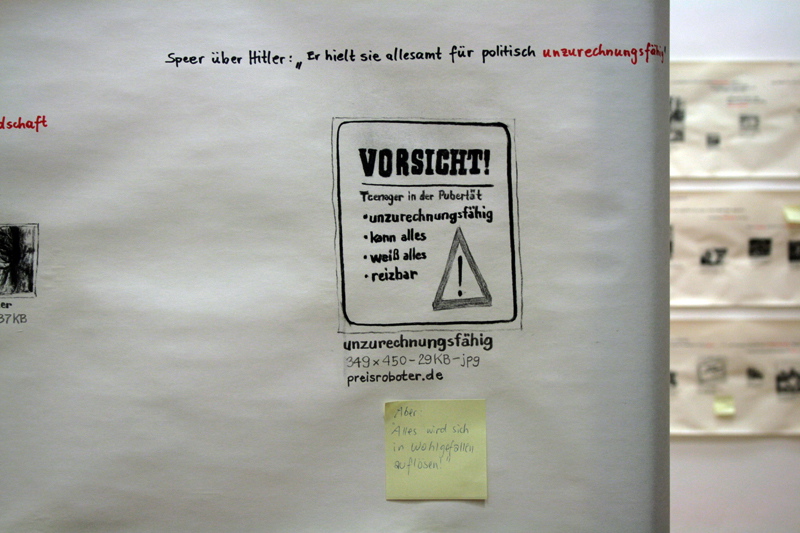 Speer über Hitler: „Er hielt sie allesamt für politisch unzurechnungsfähig"
dschaft
VORSICHT!
Teenager in der Pubertät
•unzurechnungsfähig
•kann alles
•weiß alles
•reizbar
!
er
37KB
unzurechnungsfähig
349x450-29KB-jpg
preisroboter.de
Aber
Alles wird sich
in Wohlgefallen
auflösen!